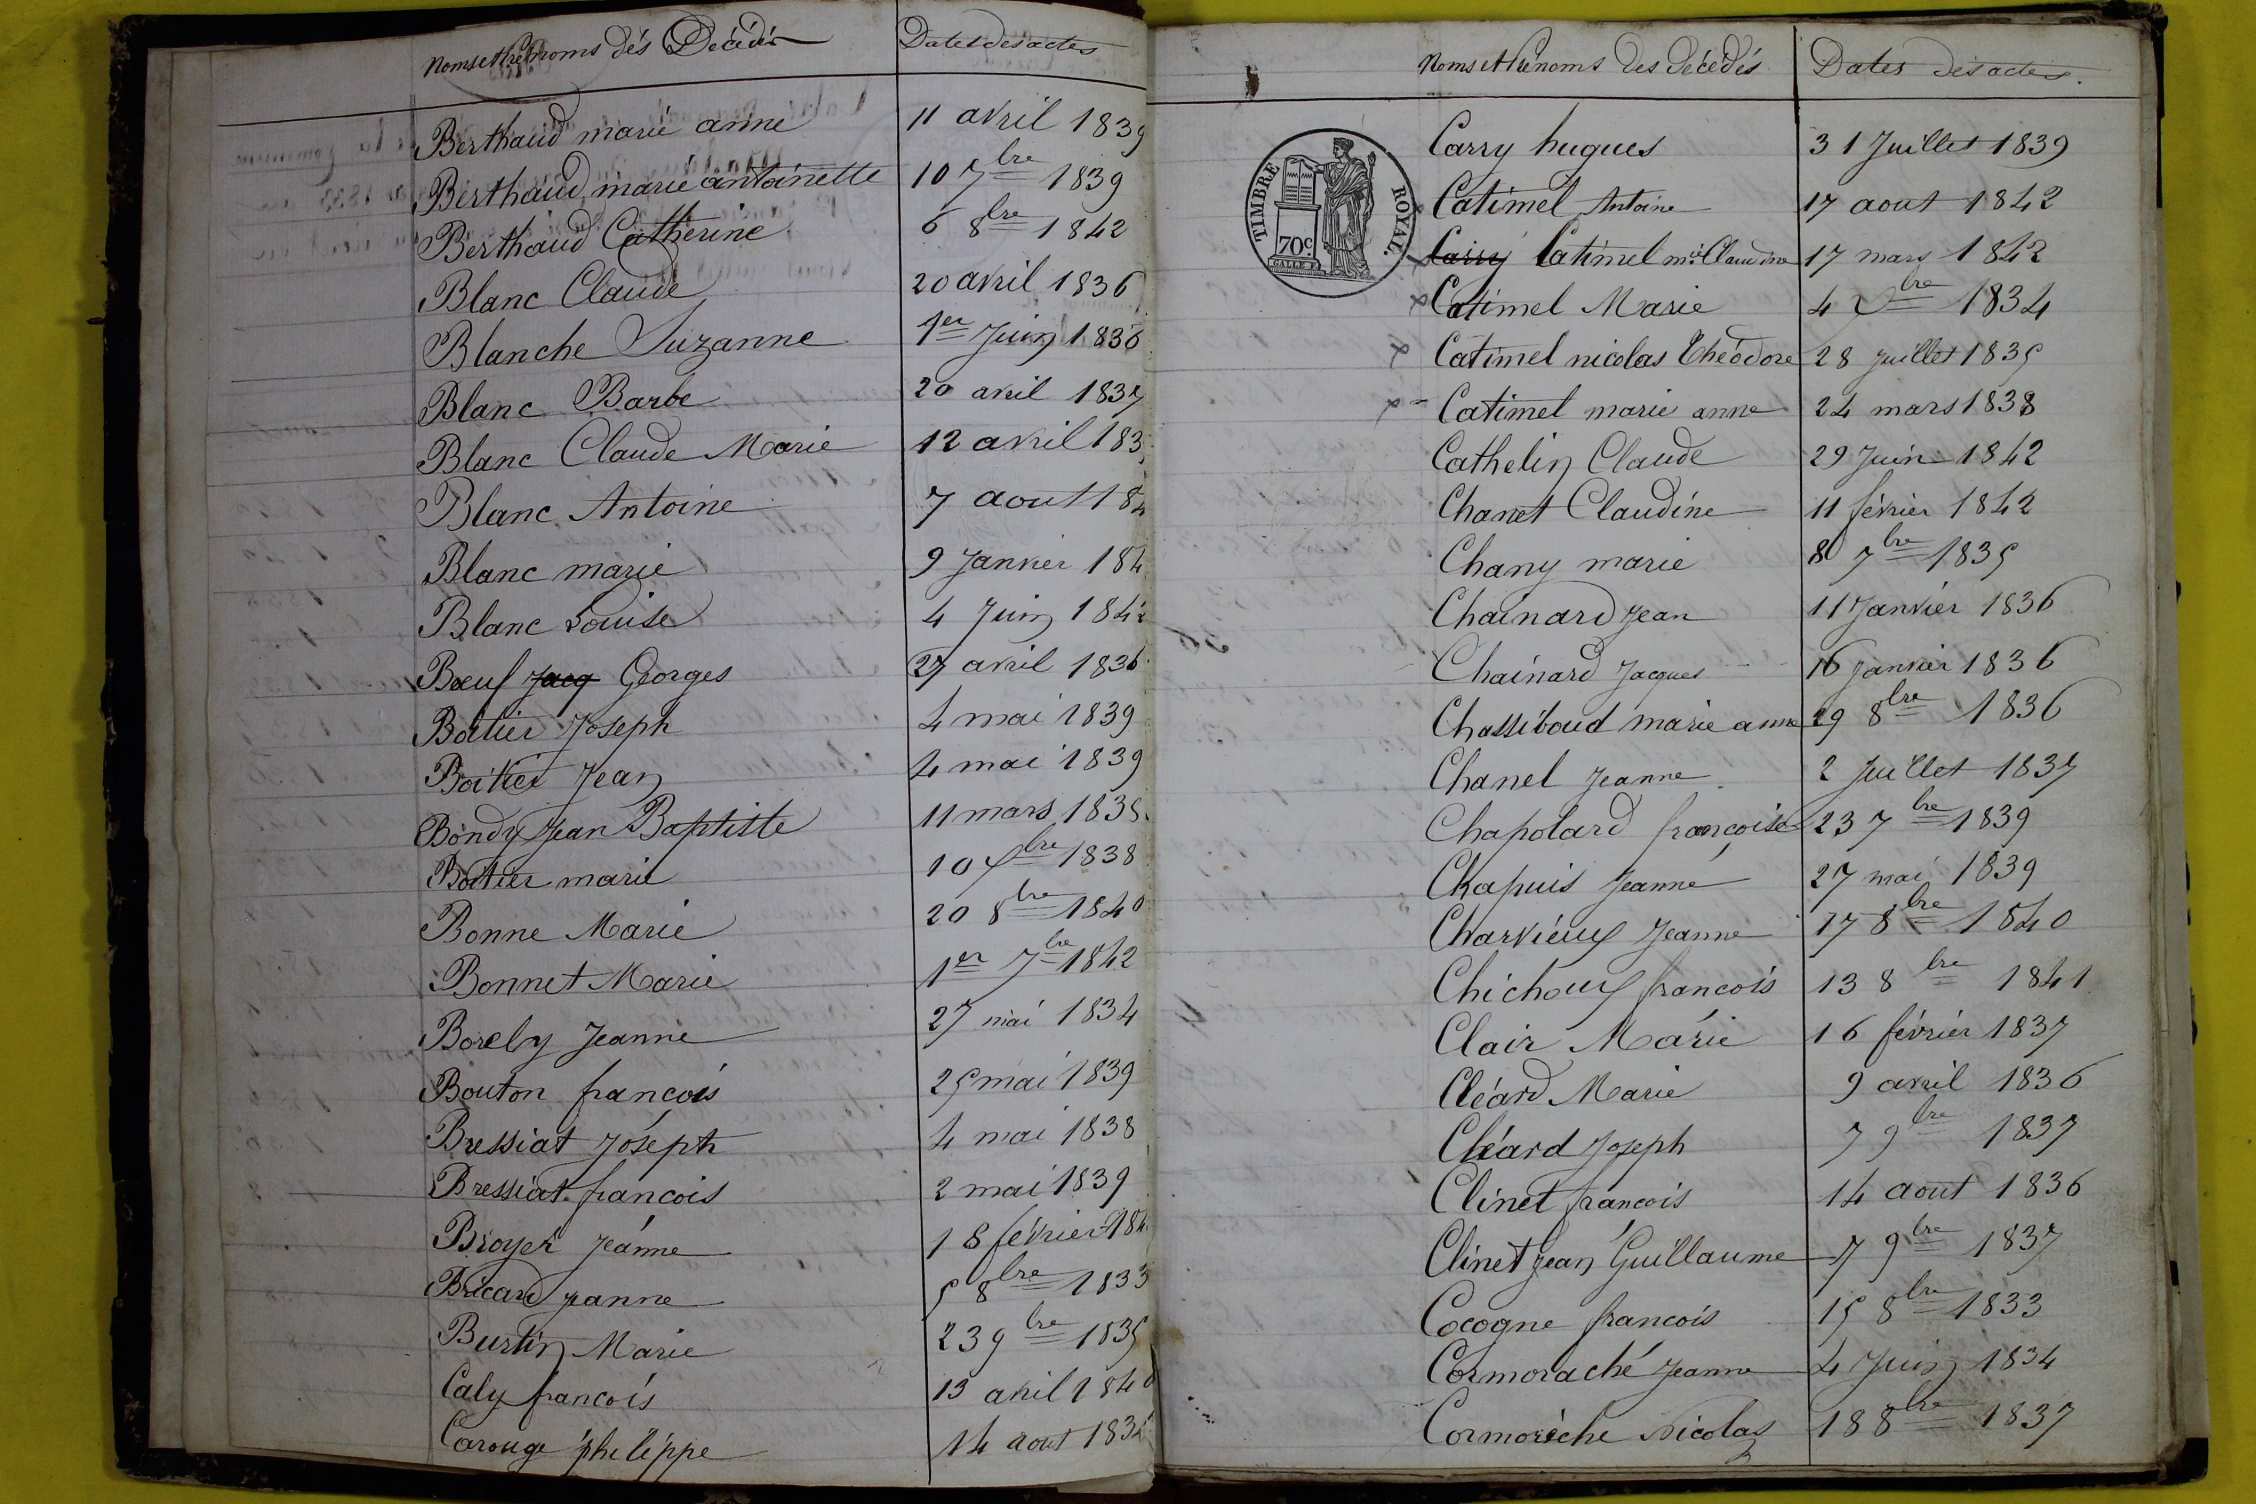 Noms et Prénoms des Décédés Dates des actes
Berthaud marie anne 11 avril 1839
Berthaud marie antoinette 10 7bre 1839
Berthaud Catherine 6 8bre 1842
Blanc Claude 20 avril 1836
Blanche Suzanne 1er Juin 1836
Blanc Barbe 20 avril 1837
Blanc Claude Marie 12 avril 183
Blanc Antoine 7 aout 184
Blanc marie 9 Janvier 184
Blanc Louise 4 Juin 1842
Bœuf Jacq Georges 27 avril 1836
Boitier Joseph 4 mai 1839
Boitier Jean 4 mai 1839
Bondy Jean Baptiste 11 mars 1835
Boitier marie 10 Xbre 1838
Bonne Marie 20 8bre 1840
Bonnet Marie 1er 7bre 1842
Borely Jeanne 27 mai 1834
Bouton francois 25 mai 1839
Bressiat Joseph 4 mai 1838
Bressiat francois 2 mai 1839
Broyer Jeanne 18 février 184
Bricard Jeanne 5 8bre 1833
Burtin Marie 23 9bre 1835
Caly francois 13 avril 1840
Carouge philippe 14 aout 183
Noms et Prénoms des Décédés Dates des actes.
TIMBRE ROYAL.
70c
Carry hugues 31 Juillet 1839
Catimel Antoine 17 aout 1842
x Carry Catimel mie Claudine 17 mars 1842
x Catimel Marie 4 Xbre 1834
x Catimel nicolas Théodore 28 Juillet 1835
x Catimel marie anne 24 mars 1838
Cathelin Claude 29 Juin 1842
Chanet Claudine 11 février 1842
Chany marie 8 7bre 1835
Chainard Jean 11 Janvier 1836
Chainard Jacques 16 Janvier 1836
Chassiboud marie anne 29 8bre 1836
Chanel Jeanne 2 Juillet 1837
Chapolard françoise 23 7bre 1839
Chapuis Jeanne 27 mai 1839
Charvieux Jeanne 17 8bre 1840
Chichoux francois 13 8bre 1841
Clair Marie 16 février 1837
Cléard Marie 9 avril 1836
Cléard Joseph 7 9bre 1837
Clinet francois 14 aout 1836
Clinet Jean Guillaume 17 9bre 1837
Cocogne francois 15 8bre 1833
Cormoraché Jeanne 4 Juin 1834
Cormorèche Nicolas 18 8bre 1837